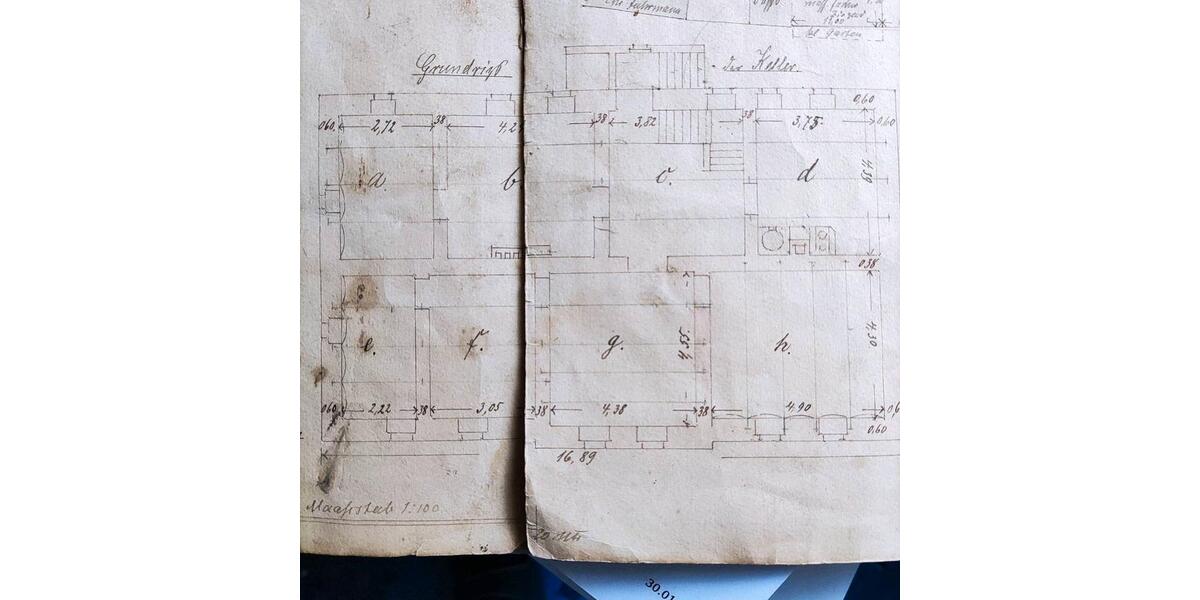 Grundriss
der Keller.
0,60
060. 2,72 38 4,2 38 3,82 38 3,75 0,60
a. b c. d 4,59
0,38
e. f. g. 4,55 h. 4,30
060 2,22 38 3,05 38 4,38 38 4,90 0,6
0,60
16,89
Maaßstab 1:100
20 mtr
30.01